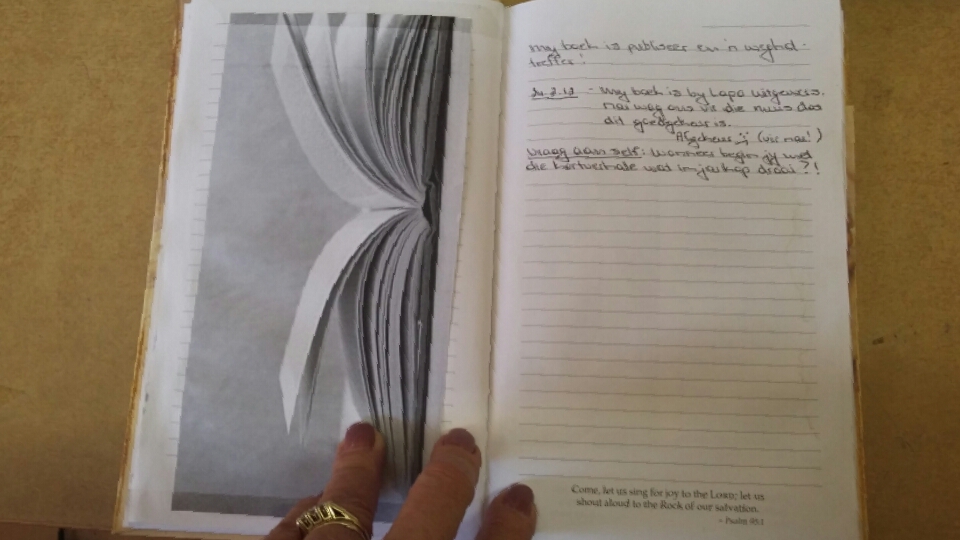 My boek is publiseer en 'n weghol-
treffer!
24.2.12 - My boek is by Lapa Uitgewers.
Nou wag ons vir die nuus dat
dit goedgekeur is.
Afgekeur :( (vir nou!)
Vraag aan self: Wanneer begin jy met
die kortverhale wat in jou kop draai?!
Come, let us sing for joy to the LORD; let us
shout aloud to the Rock of our salvation.
~ Psalm 95:1